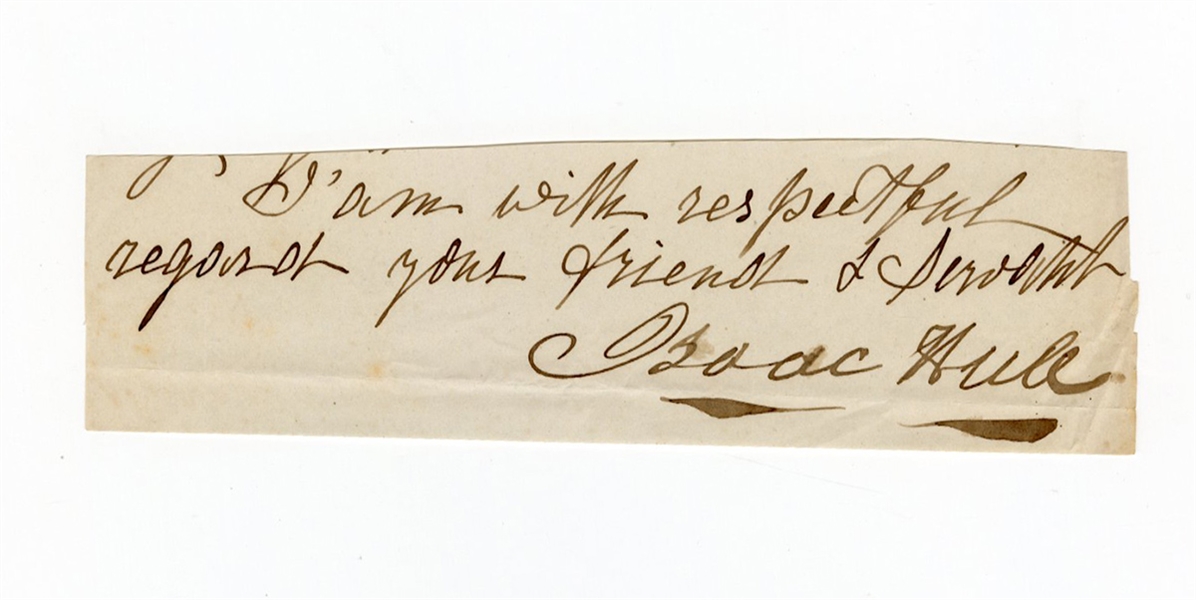 I'am with respectful
regard your friend & Servant
Isaac Hull